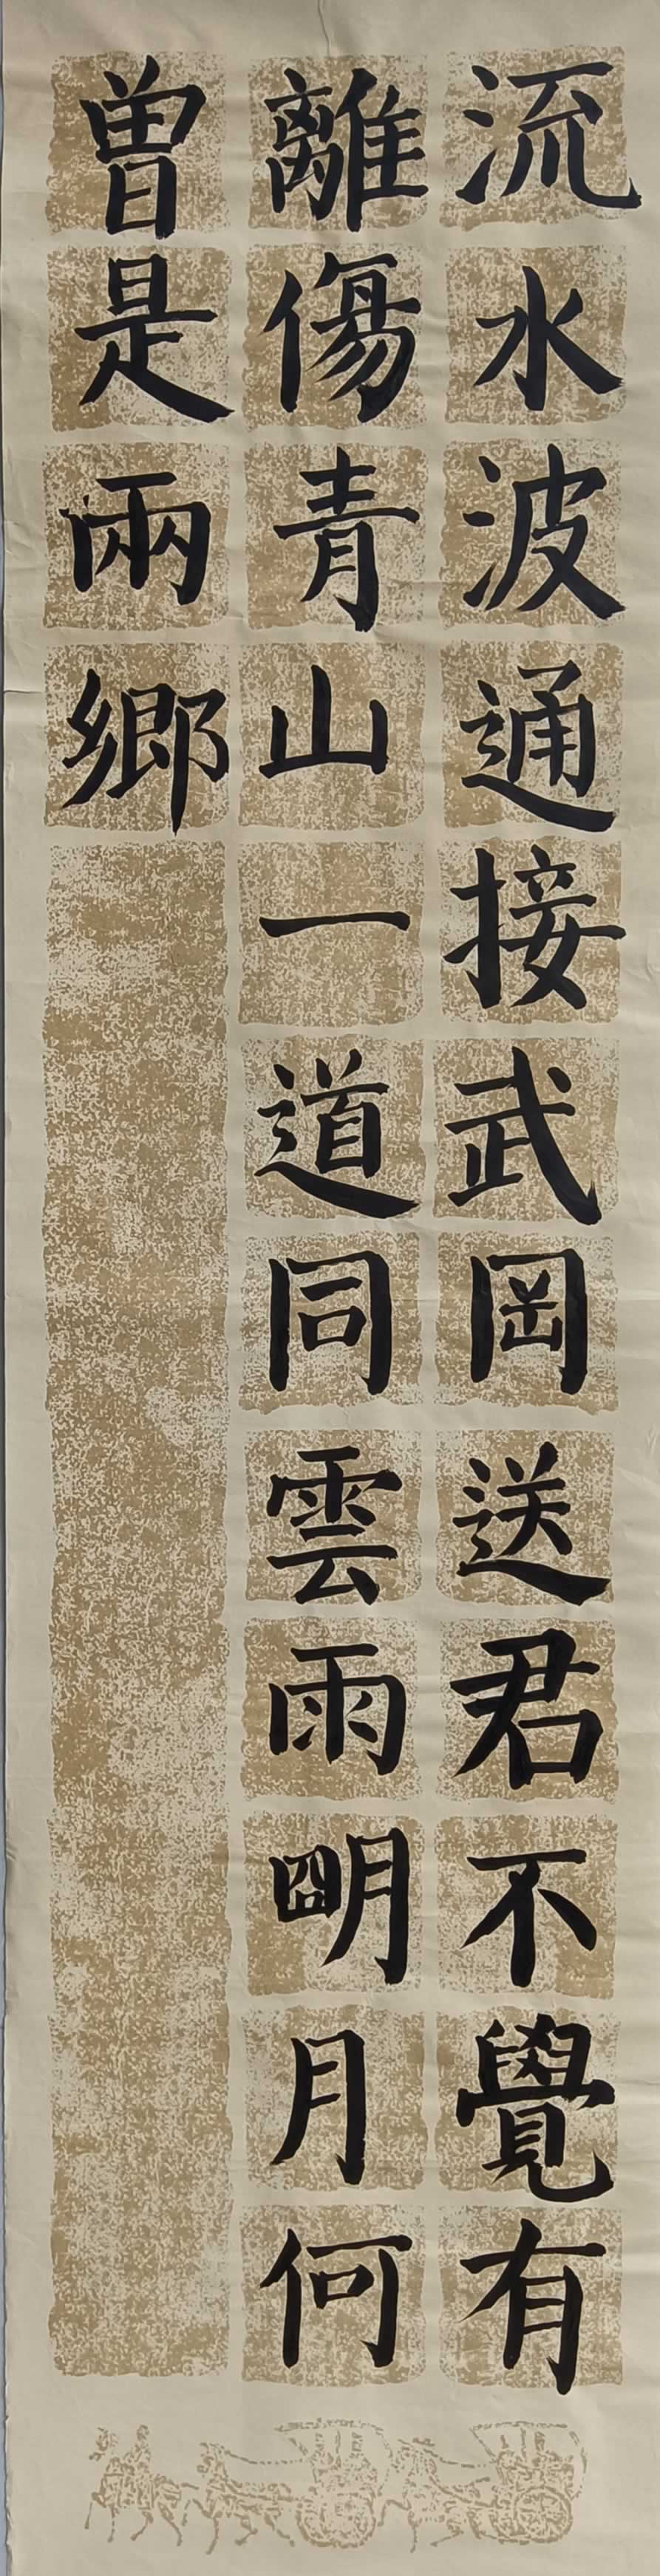 流水波通接武岡送君不覺有
離傷青山一道同雲雨朙月何
曽是兩鄉